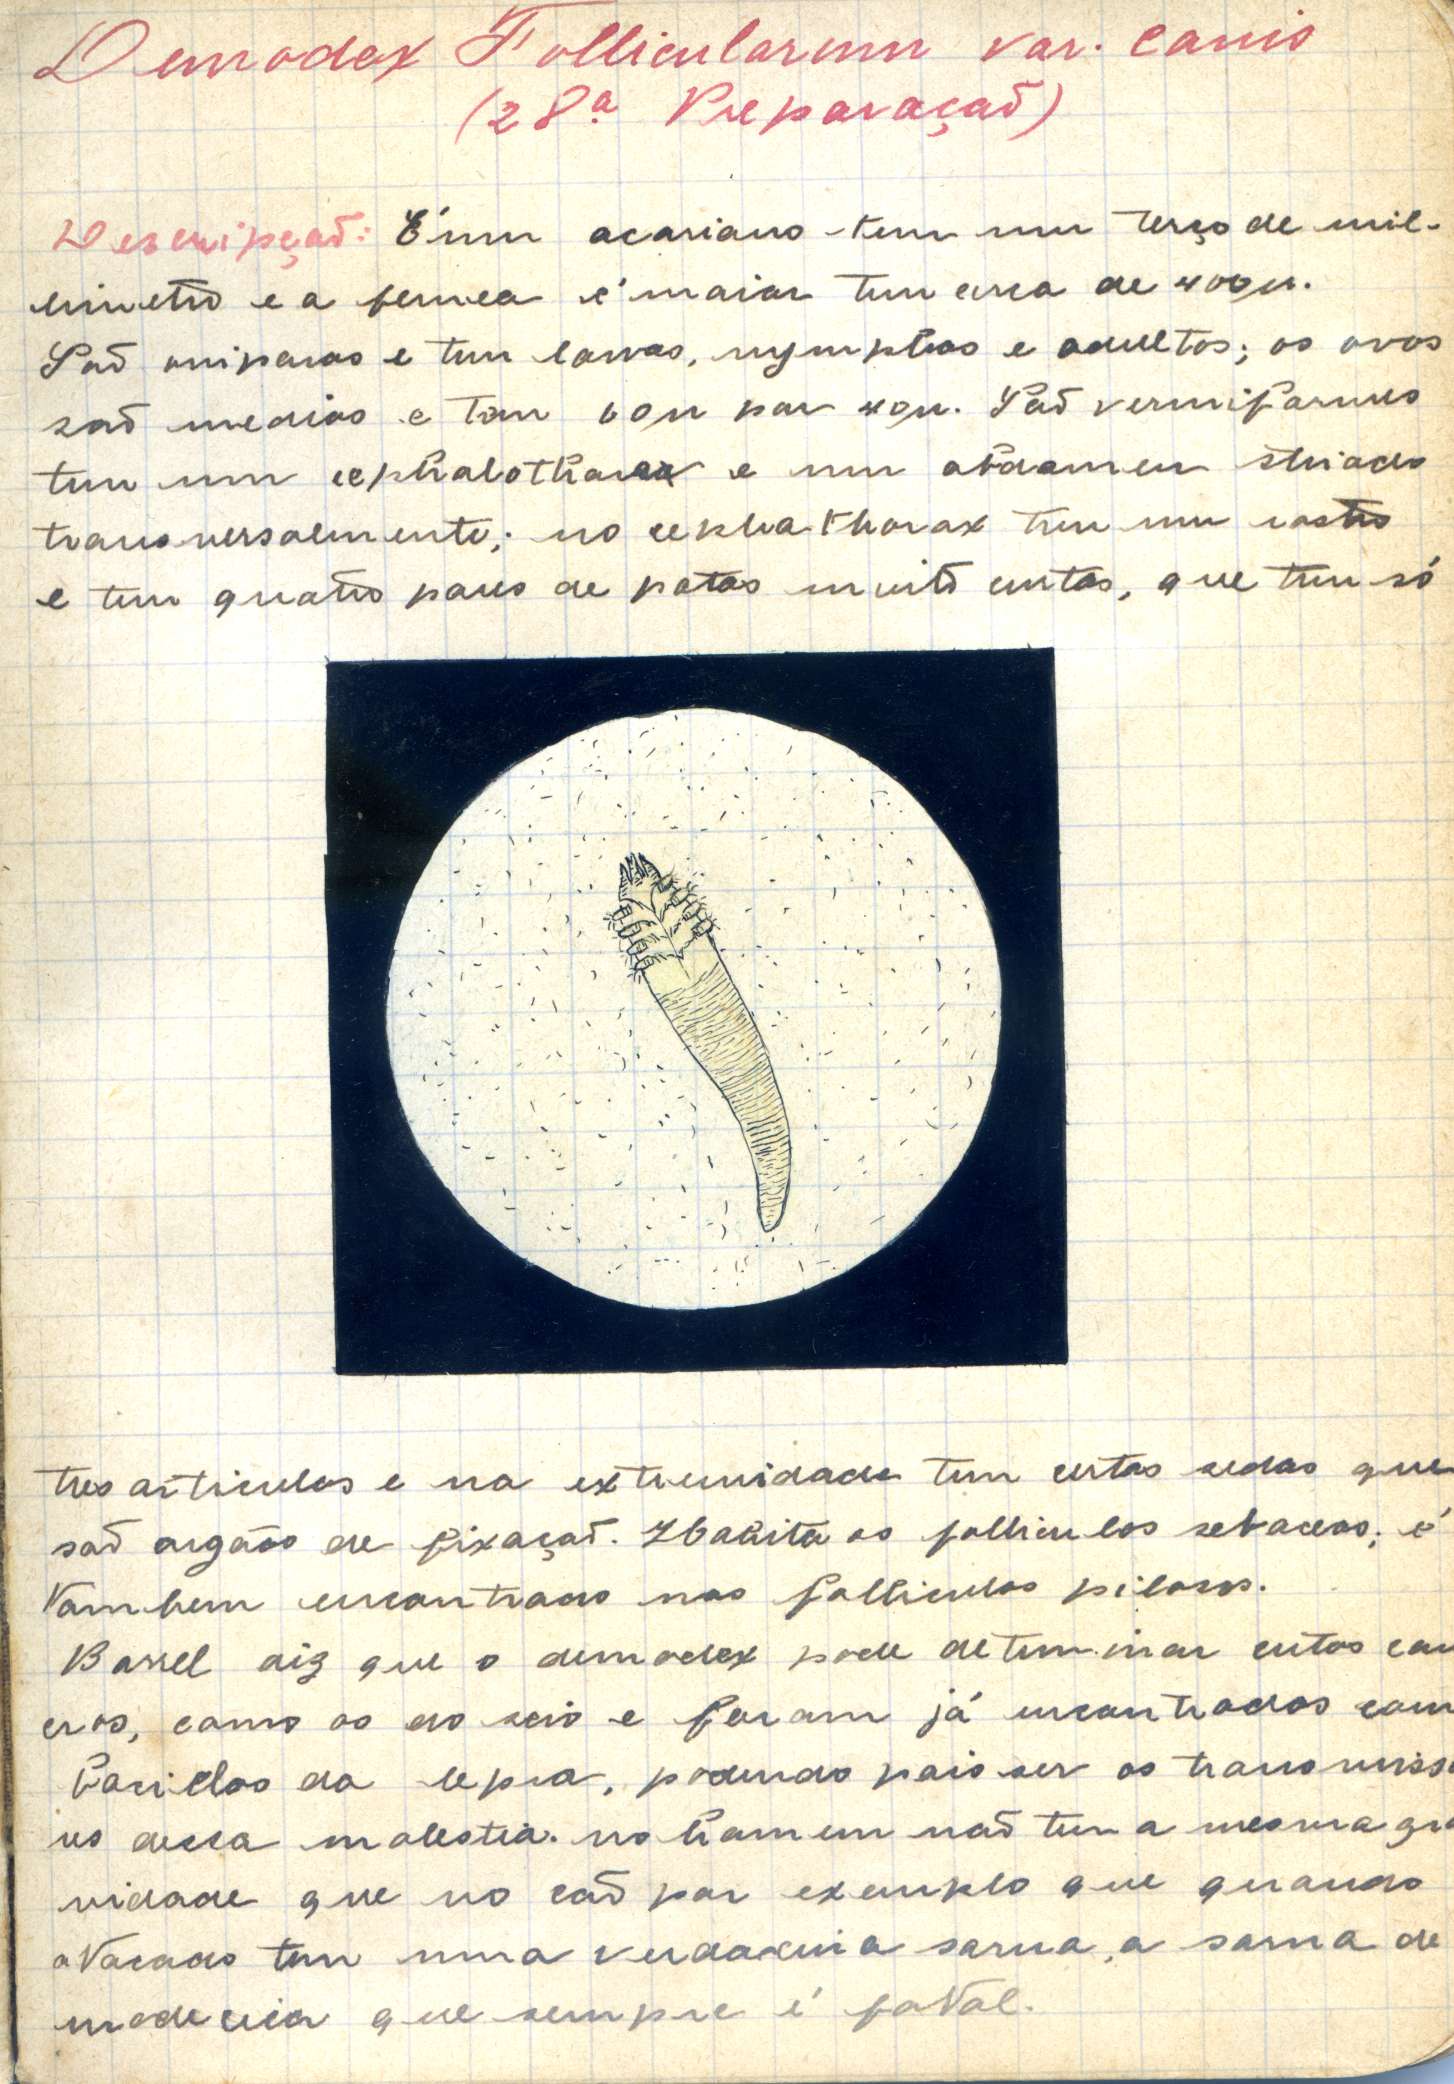 Demodex Follicularum var. canis
(28ª Preparação)
Descripção: É um acariano tem um terço de mil-
limetro e a femea é maior tem cerca de 400µ.
São oviparos e tem larvas, nymphas e adultos; os ovos
são medios e tem 60µ por 40µ. São vermiformes
tem um cephalothorax e um abdomen striado
transversalmente; no cephalothorax tem um rostro
e tem quatro pares de patas muito curtas, que tem só
tres articulos e na extremidade tem certas sedas que
são orgãos de fixação. Habita os folliculos sebaceos; é
tambem encontrado nos folliculos pilosos.
Borrel diz que o demodex pode determinar certos can
cros, como os do seio e foram já encontrados com
bacillos da lepra, podendo pois ser os transmisso
res dessa molestia. no homem não tem a mesma gra
vidade que no cão por exemplo que quando
atacado tem uma verdadeira sarna, a sarna de
modecica que sempre é fatal.